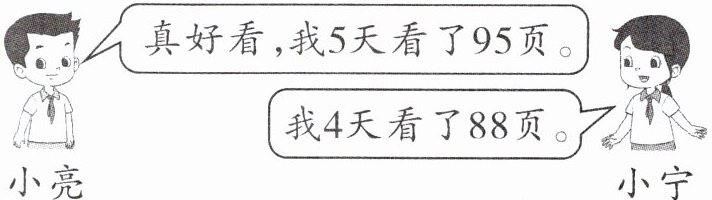 真好看,我5天看了95页。
我4天看了88页。
小亮
小宁